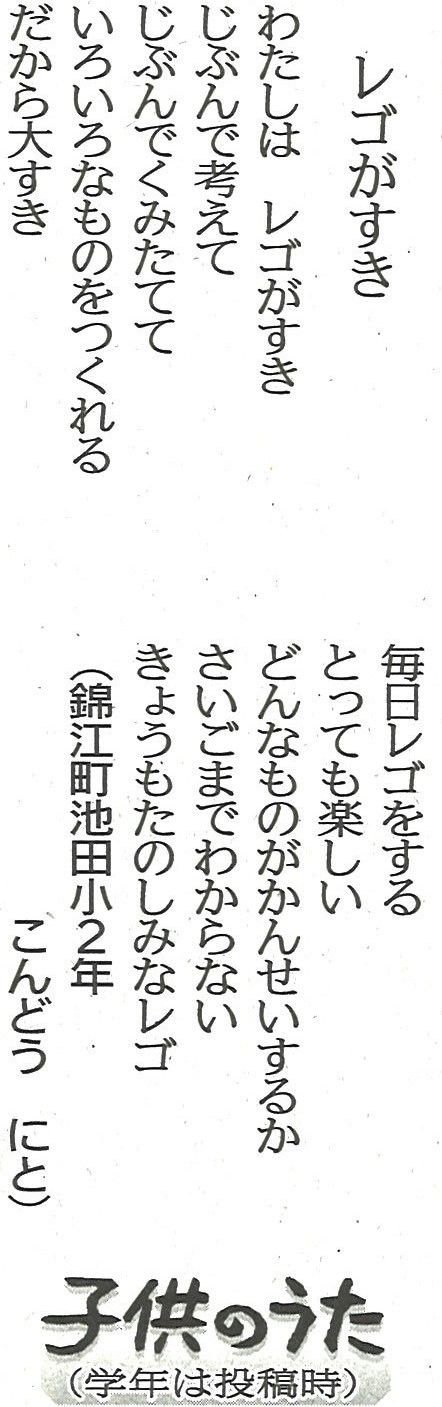 レゴがすき
わたしは　レゴがすき
じぶんで考えて
じぶんでくみたてて
いろいろなものをつくれる
だから大すき
毎日レゴをする
とっても楽しい
どんなものがかんせいするか
さいごまでわからない
きょうもたのしみなレゴ
（錦江町池田小２年
こんどう　にと）
子供のうた
（学年は投稿時）